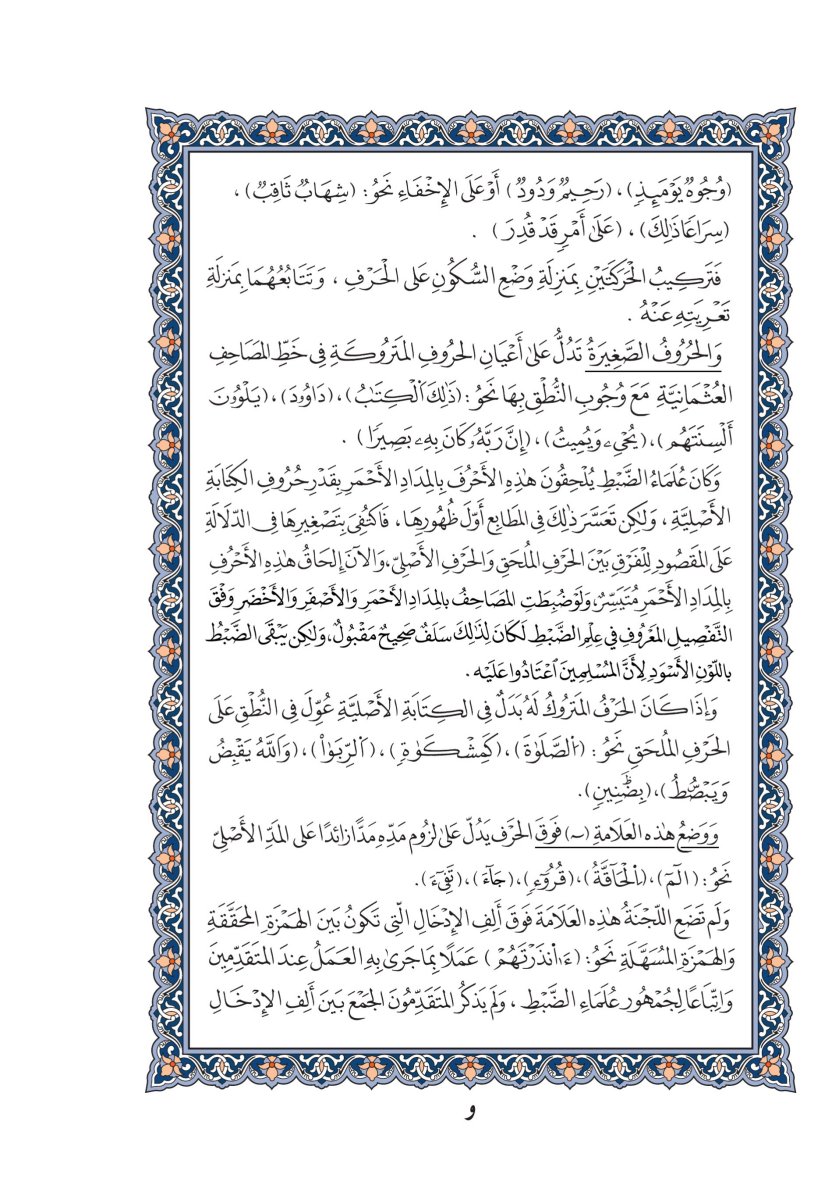 (وُجُوهٌ يَوْمَئِذٍ)، (رَحِيمٌ وَدُودٌ) أَوْ عَلَى الإِخْفَاءِ نَحْوُ: (شِهَابٌ ثَاقِبٌ)،
(سِرَاعًا ذَٰلِكَ)، (عَلَىٰ أَمْرٍ قَدْ قُدِرَ) .
فَتَركِيبُ الْحَرَكَتَيْنِ بِمَنزِلَةِ وَضْعِ السُّكُونِ عَلى الْحَرْفِ ، وَتَتَابُعُهُمَا بِمَنزِلَةِ
تَعْرِيَتِهِ عَنْهُ .
وَالحُرُوفُ الصَّغِيرَةُ تَدُلُّ عَلىٰ أَعْيَانِ الحُرُوفِ المَتْرُوكَةِ فِي خَطِّ المَصَاحِفِ
العُثْمَانِيَّةِ مَعَ وُجُوبِ النُّطْقِ بِهَا نَحْوُ: (ذَٰلِكَ ٱلْكِتَٰبُ)، (دَاوُۥدَ)، (يَلْوُۥنَ
أَلْسِنَتَهُم)، (يُحْيِۦ وَيُمِيتُ)، (إِنَّ رَبَّهُۥ كَانَ بِهِۦ بَصِيرًا) .
وَكَانَ عُلَمَاءُ الضَّبْطِ يُلْحِقُونَ هَٰذِهِ الأَحْرُفَ بِالمِدَادِ الأَحْمَرِ بِقَدْرِ حُرُوفِ الكِتَابَةِ
الأَصْلِيَّةِ ، وَلَٰكِن تَعَسَّرَ ذٰلِكَ فِي المَطَابِعِ أَوَّلَ ظُهُورِهَا، فَاكْتُفِيَ بِتَصْغِيرِهَا فِي الدّلَالَةِ
عَلَى المَقصُودِ لِلْفَرْقِ بَيْنَ الحَرْفِ المُلحَقِ وَالحَرْفِ الأَصْلِيّ،وَالآنَ إِلحَاقُ هٰذِهِ الأَحْرُفِ
بِالمِدَادِ الأَحْمَرِ مُتَيَسِّرٌ،وَلَوْ ضُبِطَتِ المَصَاحِفُ بِالمِدَادِ الأَحْمَرِ وَالأَصْفَرِ وَالأَخْضَرِ وَفْقَ
التَّفْصِيلِ المَعْرُوفِ فِي عِلْمِ الضَّبْطِ لَكَانَ لِذَٰلِكَ سَلَفٌ صَحِيحٌ مَقْبُولٌ،وَلَٰكِن يَبْقَى الضَّبْطُ
بِاللَّوْنِ الأَسْوَدِ لِأَنَّ المُسْلِمِينَ ٱعْتَادُوا عَلَيْهِ .
وَإِذَا كَانَ الحَرْفُ المَتْرُوكُ لَهُ بَدَلٌ فِي الكِتَابَةِ الأَصْلِيَّةِ عُوِّلَ فِي النُّطْقِ عَلَى
الحَرْفِ المُلْحَقِ نَحْوُ: (ٱلصَّلَوٰةَ)، (كَمِشْكَوٰةٍ)، (ٱلرِّبَوٰا۟)، (وَٱللَّهُ يَقْبِضُ
وَيَبْصُۜطُ)، (بِضَنِينٍ).
وَوَضْعُ هٰذِهِ العَلَامَةِ (~) فَوقَ الحَرْفِ يَدُلّ عَلىٰ لُزُومِ مَدِّهِ مَدًّا زَائِدًا عَلى المَدِّ الأَصْلِيّ
نَحْوُ: (الٓمٓ)، (ٱلْحَآقَّةُ)، (قُرُوٓءٍ)، (جَآءَ)، (تَفِيٓءَ).
وَلَم تَضَعِ اللَّجْنَةُ هٰذِهِ العَلَامَةَ فَوْقَ أَلِفِ الإِدْخَالِ الَّتِي تَكُونُ بَيْنَ الهَمْزَةِ المُحَقَّقَةِ
وَالهَمْزَةِ المُسَهَّلَةِ نَحْوُ: (ءَا۬نذَرْتَهُمْ) عَمَلًا بِمَا جَرىٰ بِهِ العَمَلُ عِندَ المتَقَدِّمِينَ
وَاتِّبَاعًا لِجُمْهُورِ عُلَمَاءِ الضَّبْطِ ، وَلَم يَذكُرِ المتَقَدِّمُونَ الجَمْعَ بَيْنَ أَلِفِ الإِدْخَالِ
و